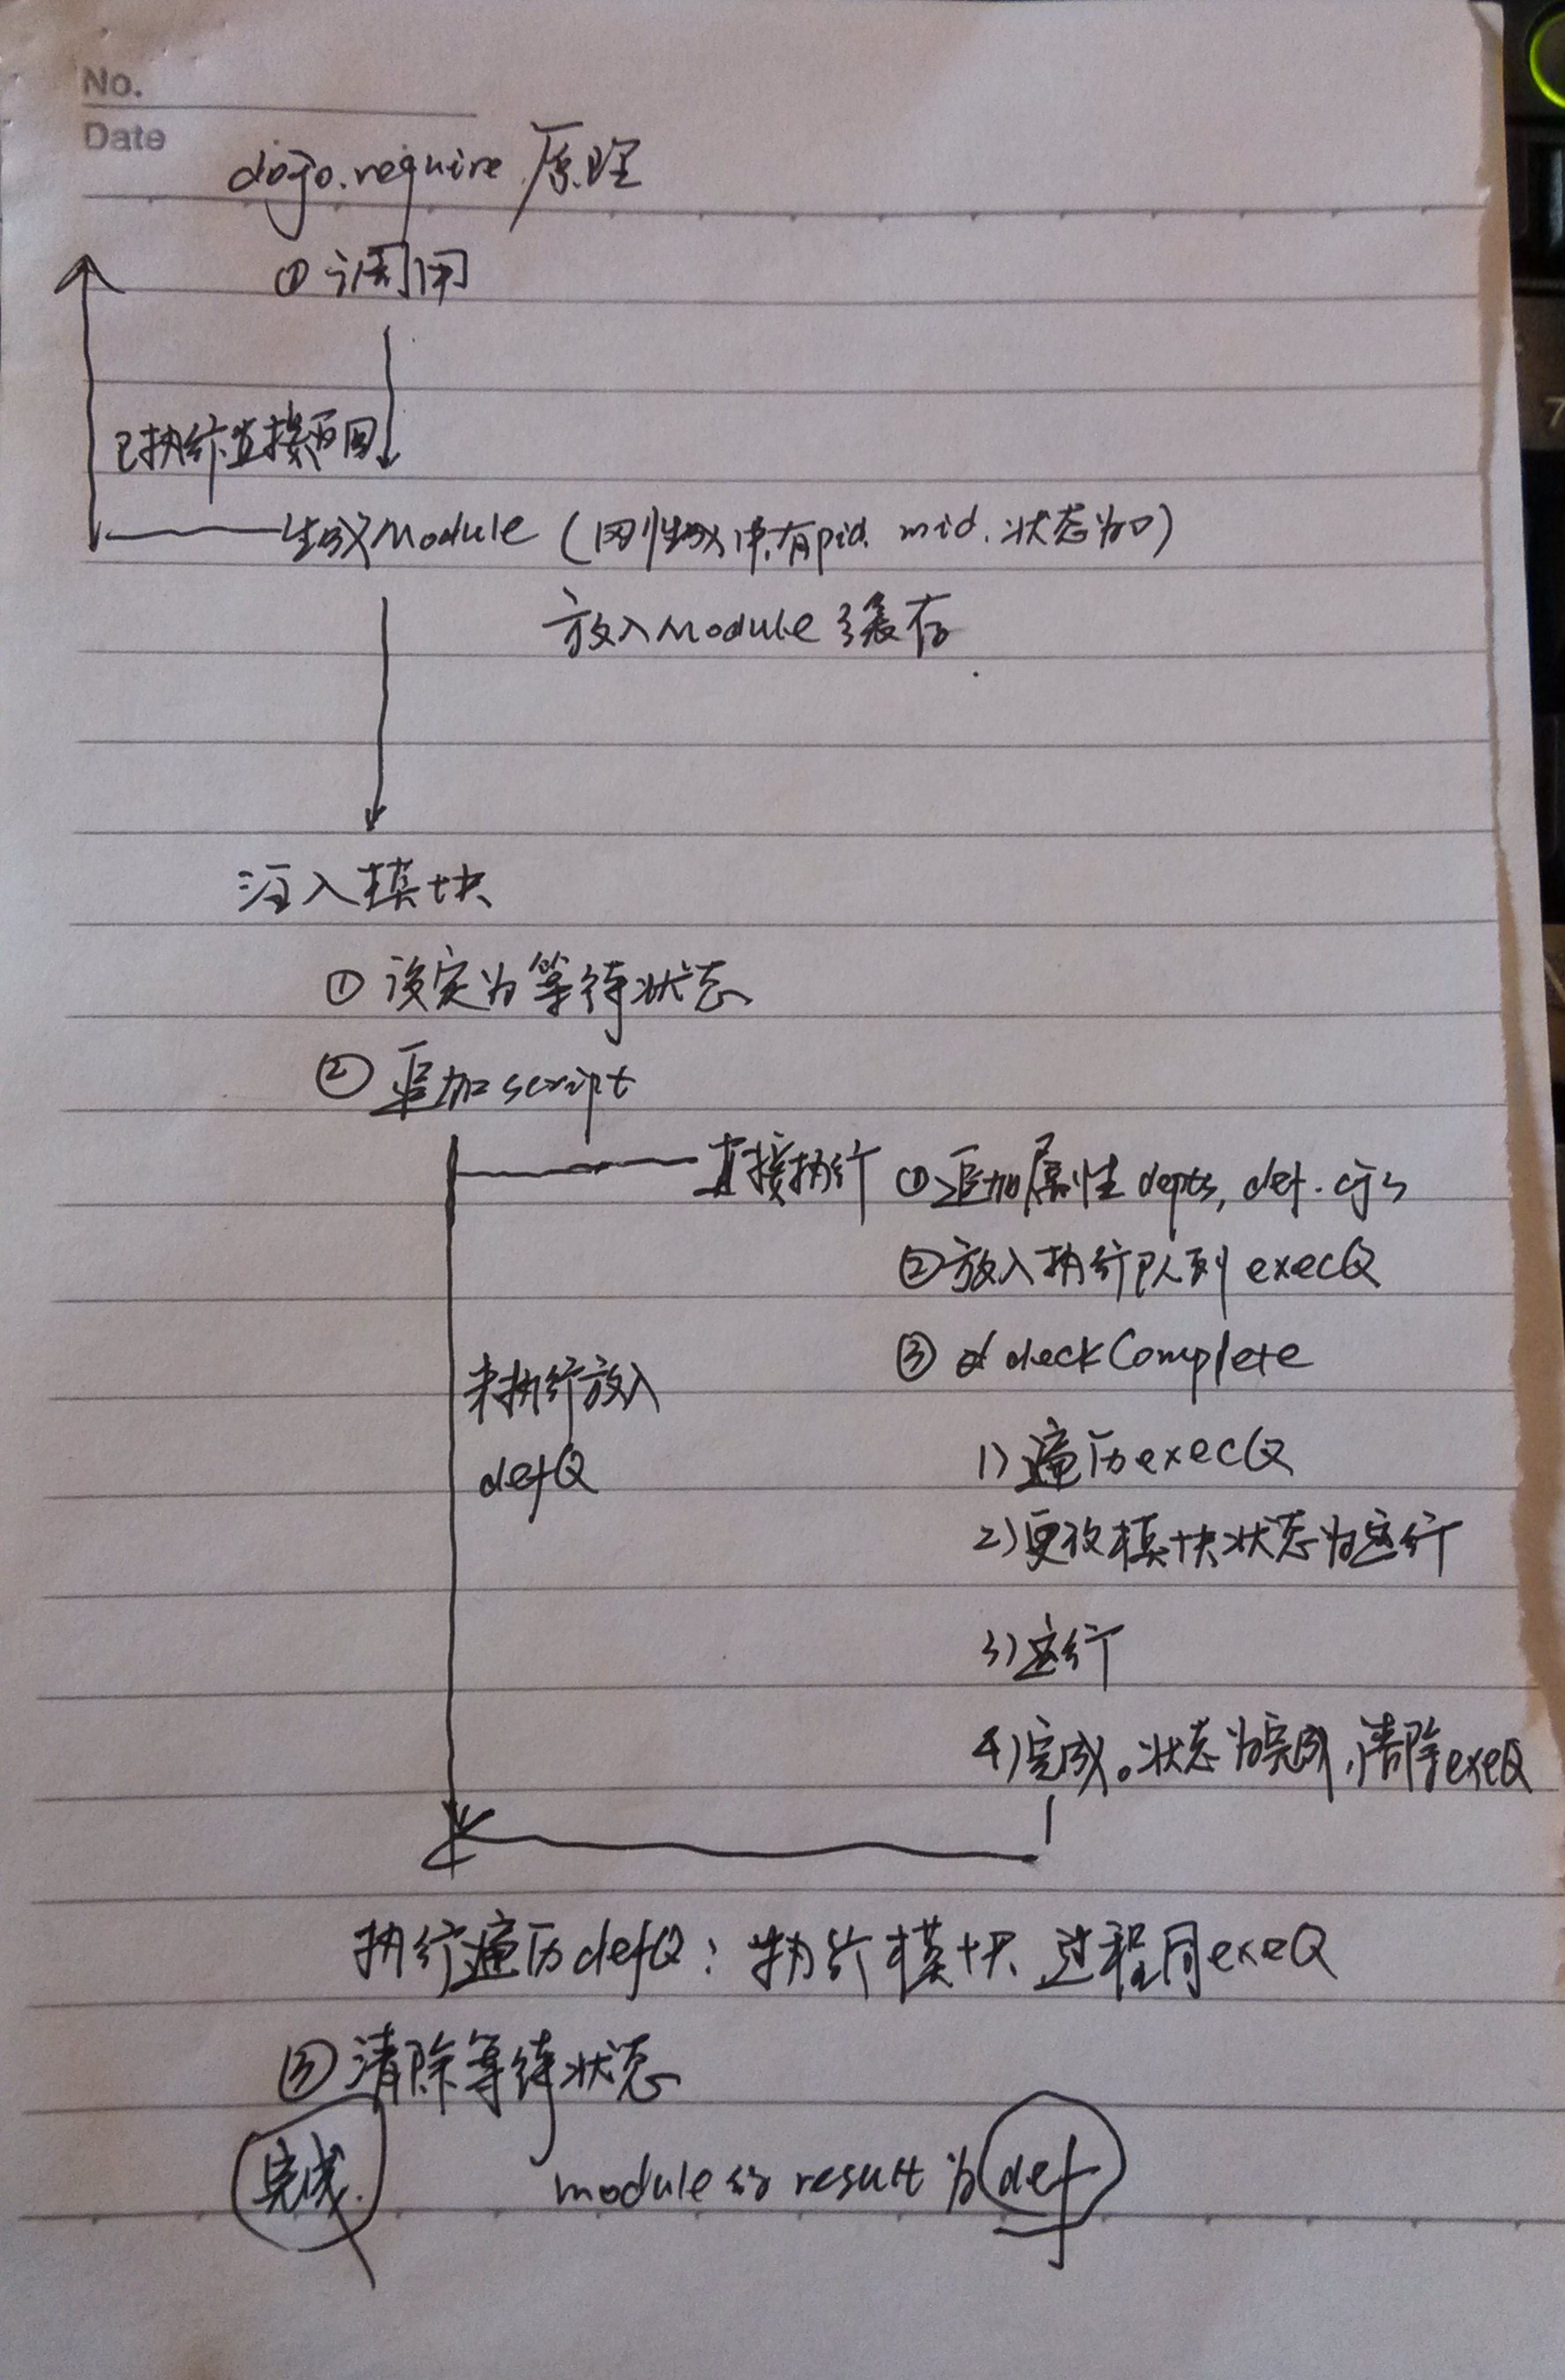 No.
Date
dojo.require 原理
① 调用
已执行直接返回
生成Module (刚生成只有pid mid.状态为0)
放入Module 缓存
注入模块
① 设定为等待状态
② 追加script
直接执行 ①追加属性 depts, def. cjs
②放入执行队列 execQ
③ checkComplete
未执行放入
defQ
1) 遍历execQ
2) 更改模块状态为运行
3) 运行
4) 完成。状态为完成,清除exeQ
执行遍历defQ: 执行模块 过程同exeQ
③清除等待状态
完成.
module的 result 为 def